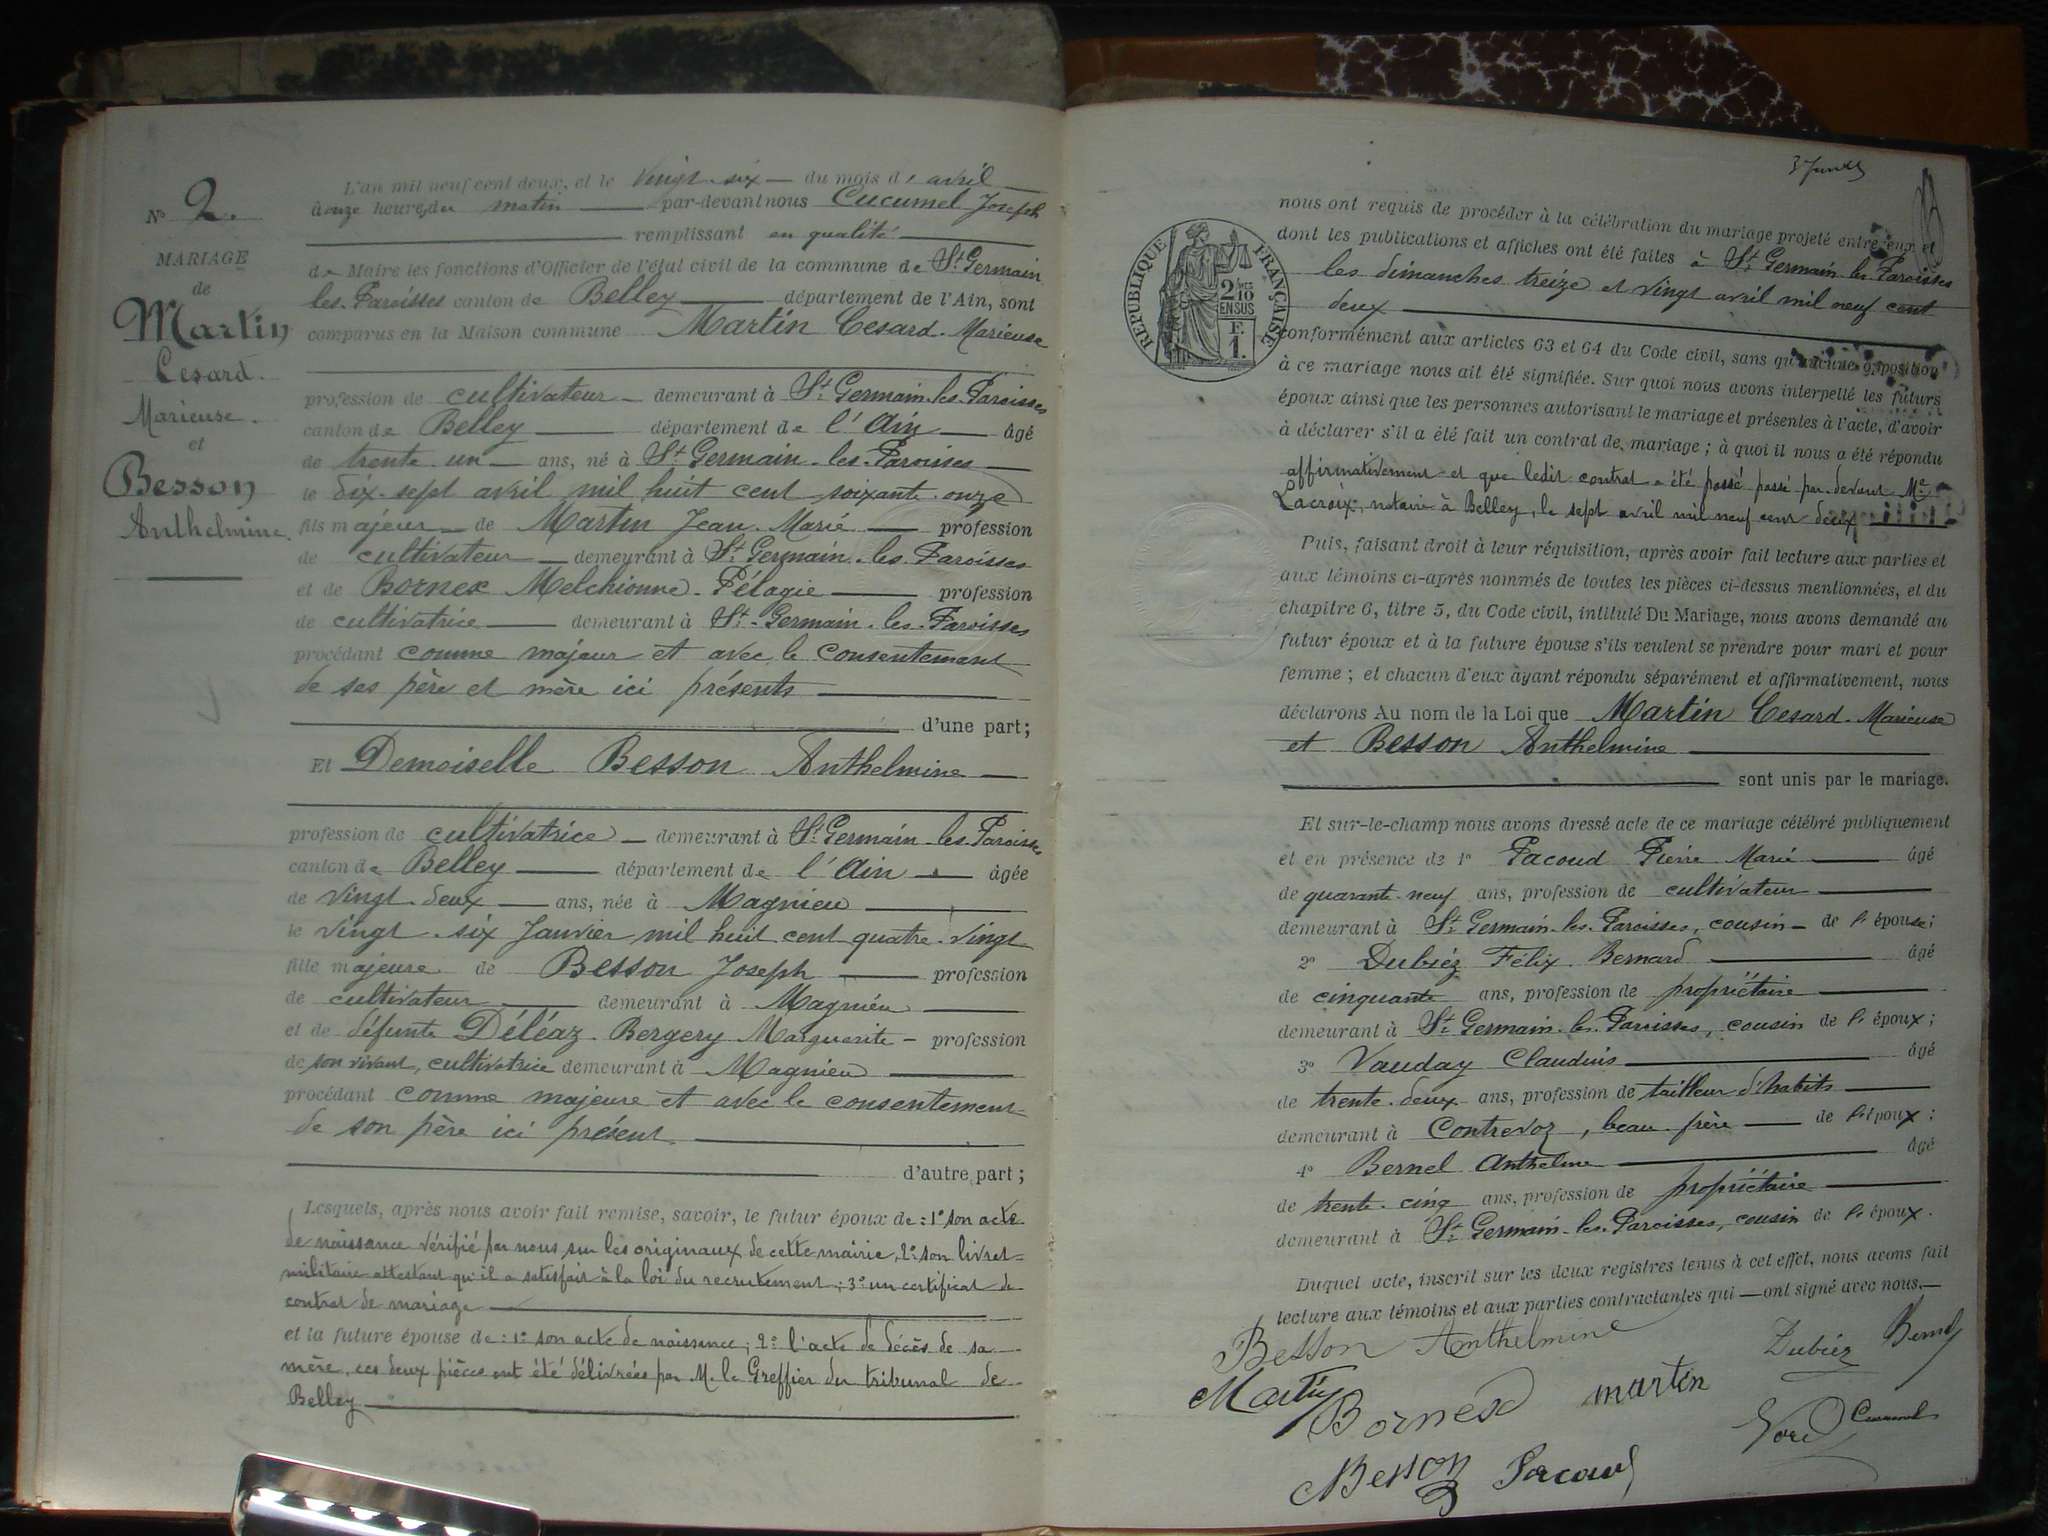 N° 2.
MARIAGE
de
Martin
Cesard.
Marieuse.
et
Besson
Anthelmine.
L'an mil neuf cent deux, et le vingt-six du mois d'avril
à onze heures du matin par-devant nous Cucumel Joseph
remplissant en qualité
de Maire les fonctions d'Officier de l'état civil de la commune de St Germain
les-Paroisses canton de Belley département de l'Ain, sont
comparus en la Maison commune Martin Cesard-Marieuse
profession de cultivateur demeurant à St Germain-les-Paroisses
canton de Belley département de l'Ain âgé
de trente-un ans, né à St Germain-les-Paroisses
le dix-sept avril mil huit cent soixante-onze
fils majeur de Martin Jean-Marie profession
de cultivateur demeurant à St Germain-les-Paroisses
et de Bornex Melchionne-Pélagie profession
de cultivatrice demeurant à St-Germain-les-Paroisses
procédant comme majeur et avec le consentement
de ses père et mère ici présents
d'une part;
Et Demoiselle Besson Anthelmine
profession de cultivatrice demeurant à St Germain-les-Paroisses
canton de Belley département de l'Ain âgée
de vingt-deux ans, née à Magnieu
le vingt-six Janvier mil huit cent quatre-vingt
fille majeure de Besson Joseph profession
de cultivateur demeurant à Magnieu
et de défunte Déléaz-Bergery Marguerite profession
de son vivant, cultivatrice demeurant à Magnieu
procédant comme majeure et avec le consentement
de son père ici présent
d'autre part;
Lesquels, après nous avoir fait remise, savoir, le futur époux de: 1° son acte
de naissance vérifié par nous sur les originaux de cette mairie, 2° son livret
militaire attestant qu'il a satisfait à la loi du recrutement; 3° un certificat de
contrat de mariage
et la future épouse de: 1° son acte de naissance; 2° l'acte de décès de sa
mère, ces deux pièces ont été délivrées par M. le Greffier du tribunal de
Belley
nous ont requis de procéder à la célébration du mariage projeté entre eux et
dont les publications et affiches ont été faites à St Germain-les-Paroisses
les dimanches treize et vingt avril mil neuf cent
deux
RÉPUBLIQUE FRANÇAISE
2/10
EN SUS
F.
1.
conformément aux articles 63 et 64 du Code civil, sans qu'aucune opposition
à ce mariage nous ait été signifiée. Sur quoi nous avons interpellé les futurs
époux ainsi que les personnes autorisant le mariage et présentes à l'acte, d'avoir
à déclarer s'il a été fait un contrat de mariage; à quoi il nous a été répondu
affirmativement et que ledit contrat a été passé passé par-devant Me
Lacroix, notaire à Belley, le sept avril mil neuf cent deux
Puis, faisant droit à leur réquisition, après avoir fait lecture aux parties et
aux témoins ci-après nommés de toutes les pièces ci-dessus mentionnées, et du
chapitre 6, titre 5, du Code civil, intitulé Du Mariage, nous avons demandé au
futur époux et à la future épouse s'ils veulent se prendre pour mari et pour
femme; et chacun d'eux ayant répondu séparément et affirmativement, nous
déclarons Au nom de la Loi que Martin Cesard-Marieuse
et Besson Anthelmine
sont unis par le mariage.
Et sur-le-champ nous avons dressé acte de ce mariage célébré publiquement
et en présence de 1° Pacoud Pierre Marie âgé
de quarante-neuf ans, profession de cultivateur
demeurant à St Germain-les-Paroisses, cousin de l'épouse;
2° Dubiéz Félix Bernard âgé
de cinquante ans, profession de propriétaire
demeurant à St Germain-les-Paroisses, cousin de l'époux;
3° Vauday Claudius âgé
de trente-deux ans, profession de tailleur d'habits
demeurant à Contrevoz, beau-frère de l'époux;
4° Bernel Anthelme âgé
de trente-cinq ans, profession de propriétaire
demeurant à St Germain-les-Paroisses, cousin de l'époux.
Duquel acte, inscrit sur les deux registres tenus à cet effet, nous avons fait
lecture aux témoins et aux parties contractantes qui ont signé avec nous.
Besson Anthelmine
Dubiéz
Martin
Bornex
martin
Cucumel
Besson
Pacoud